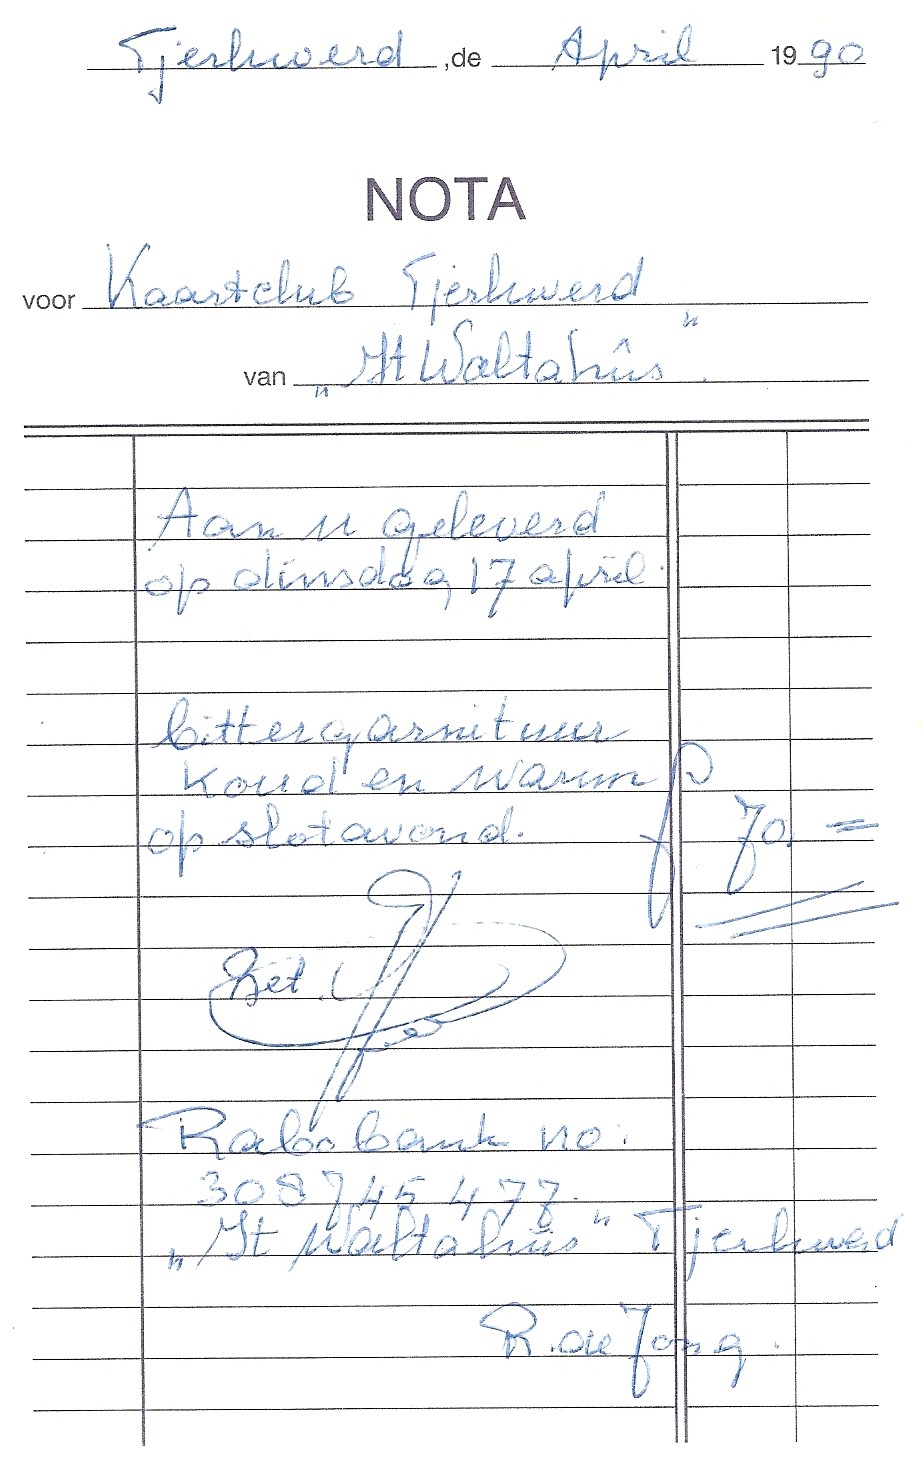 Tjerkwerd, de April 1990
NOTA
voor Kaartclub Tjerkwerd
van „It Waltahûs"
Aan u geleverd
op dinsdag 17 april.
bittergarnituur
koud en warm
op slotavond. f 70,=
Bet.
Rabobank no.
308745477.
„It Waltahûs" Tjerkwerd
R. de Jong.